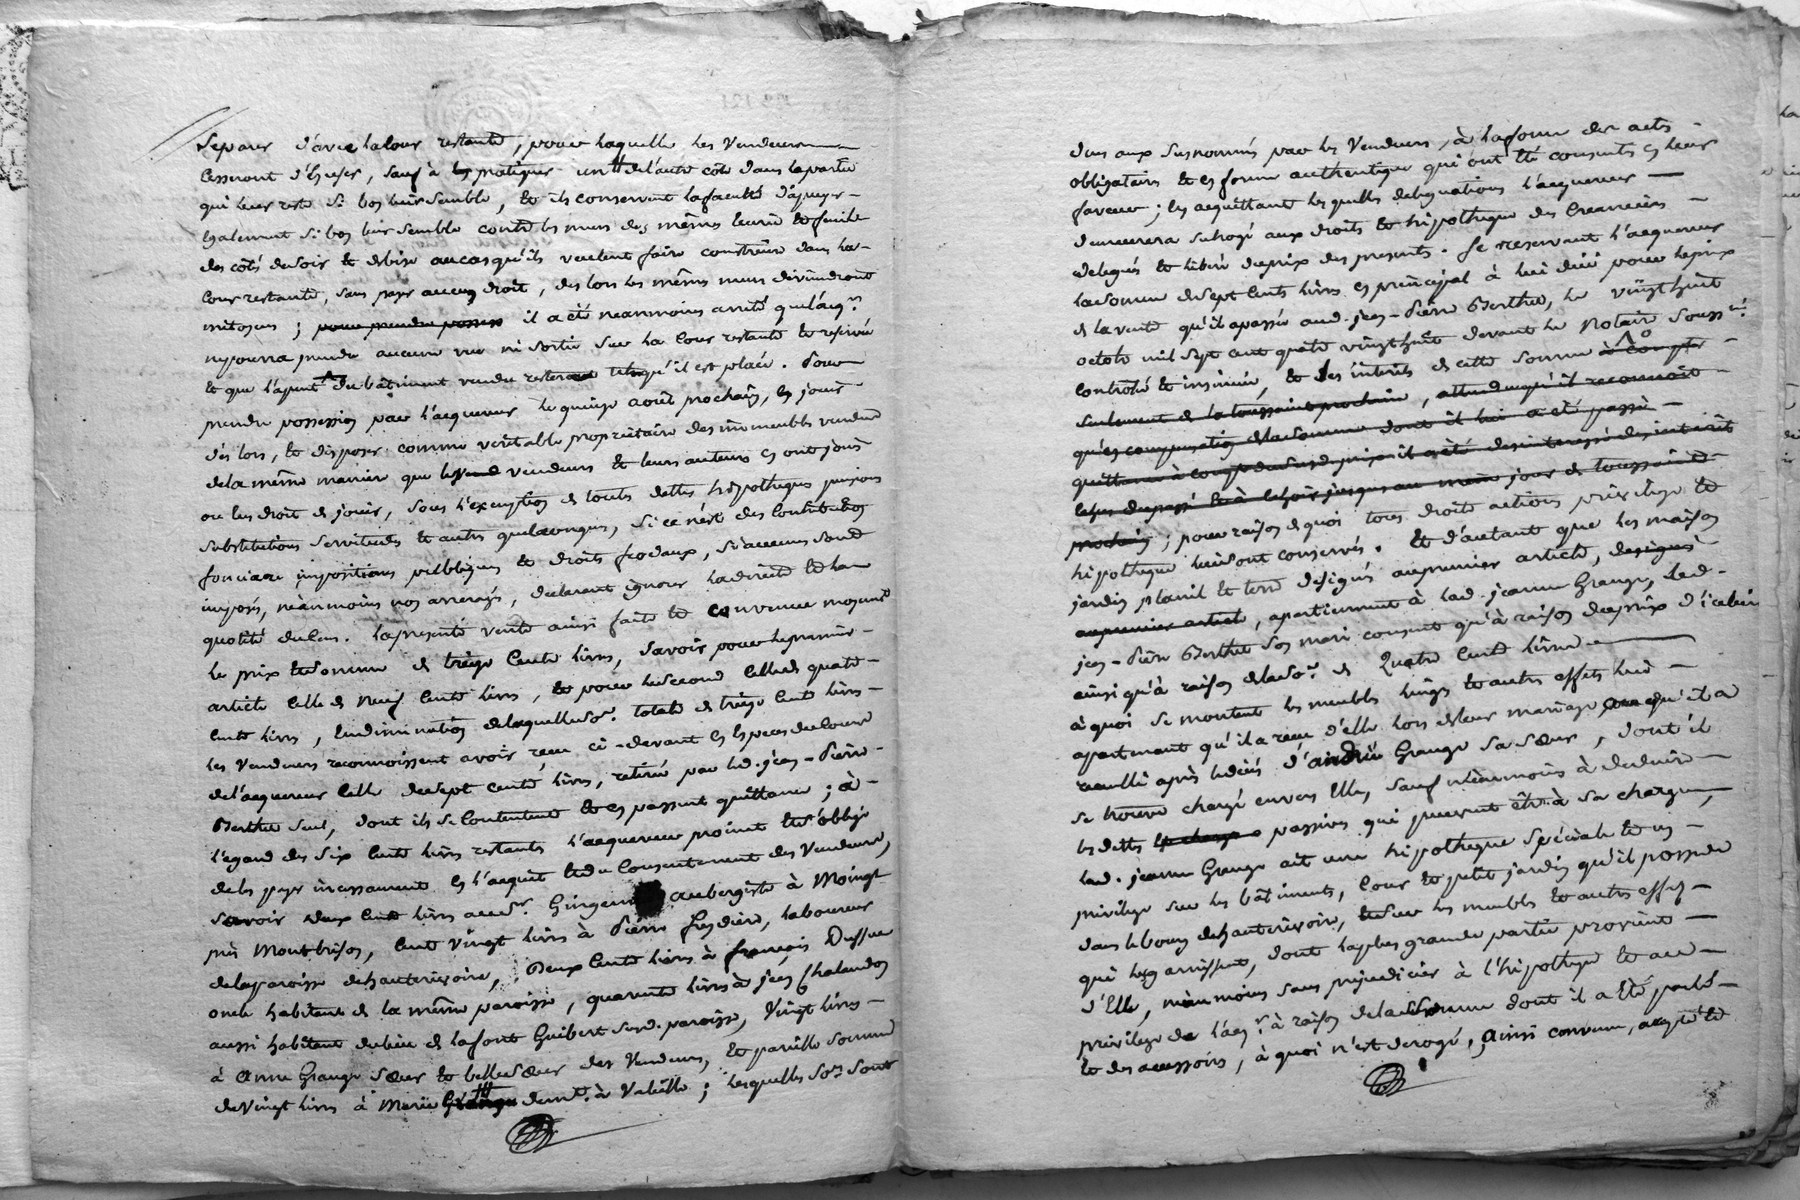 Separer d'avec la cour restante, pour laquelle les Vendeurs
cesseront d'y user, sauf à pratiquer un # de l'autre coté dans la partie
qui leur reste si bon leur semble, et ils conservent la faculté d'apuyer
egalement si bon leur semble contre les murs des mêmes ecurie et fenile
des cotés de soir et de bise au cas qu'ils veulent faire construire dans la
cour restante, sans payer aucun droit, des lors les mêmes murs deviendront
mitoyens; pour prendre possess il a été neanmoins arreté que l'aqr.
ne pourra prendre aucune vue ni sortie sur la cour restante et reservée
et que l'apent du bâtiment vendu restera tel qu'il est placé. Pour
prendre possession par l'acquereur le quinze août prochain, en jouir
dès lors, et disposer comme veritable proprietaire des immeubles vendus
de la même maniere que les vendeurs et leurs auteurs en ont joui
ou eu droit de jouir, sous l'exemption de toutes dettes hipotheques pensions
substitutions servitudes et autres quelconques, si ce n'est des Contributions
foncieres impositions publiques et droits feodaux, si aucuns sont
imposés, néanmoins nos arreragés, declarant ignorer la directe et la
quotité du cens. La presente vente ainsi faite et convenue moyent.
le prix et somme de treize cents livres, savoir pour le premier
article celle de neuf cents livres, et pour le second celle de quatre
cents livres, en diminution de laquelle so.e totale de treize cents livres
les Vendeurs reconnoissent avoir reçu ci-devant en especes de cours
de l'acquereur celle de sept cents livres, retirée par led. jean-Pierre
Berthet seul, dont ils se contentent et en passent quittance; à
l'egard des six cents livres restants l'acquereur promet et s'oblige
de les payer incessament en l'acquit et du consentement des Vendeurs,
Savoir deux cents livres au sr. aubergiste à Moingt
près Montbrison, cent vingt livres à Pierre laboureur
de la paroisse de hauterivoire, Deux cents livres à françois
oncle habitant de la même paroisse, quarante livres à jean Chalandon
aussi habitant du lieu de lafont Guibert susd. paroisse, Vingt livres
à Anne Grange soeur et belle soeur des Vendeurs, et pareille somme
de Vingt livres à Marie Grange à Valeille; lesquelles so.es sont
dues aux susnommés par les Vendeurs, à la forme des actes
obligatoires et en forme authentique qui ont été consentis en leur
faveur; les acquittant lesquelles delegations l'acquereur
demeurera subrogé aux droits et hipotheque des Creanciers
delegués et liberé du prix des presents. Se reservant l'acquereur
la somme de sept cents livres en principal à lui düe pour le prix
de la vente qu'il a passée aud. jean-Pierre Berthet, le vingt huit
octobre mil sept cent quatre vingt huit devant le Notaire Souss.né
controlé et insinuée, et les interets de cette somme à compter
seulement de la toussaint prochaine, attendu qu'il reconnoit
qu'en compensation de la somme dont il lui a été passé
quittance à compte dud. prix il a été desinteressé des interets
jusques au même jour de toussaint
prochain; pour raison de quoi tous droits actions privilege et
hipotheque lui sont conservés. Et d'autant que les maison
jardin plassil et terre designés au premier article, designés
au premier article, apartiennent à lad. jeanne Grange, led.
jean-Pierre Berthet son mari consent qu'à raison du prix d'iceux
ainsi qu'à raison de la so.e de Quatre cents livres
à quoi se montent les meubles linges et autres effets lui
apartenant qu'il a reçu d'elle lors de leur mariage que qu'il a
recueilli après le décès d'andrée Grange sa soeur, dont il
se trouve chargé envers Elle, sauf néanmoins à deduire
les dettes passives qui peuvent être à sa charge,
lad. jeanne Grange ait une hipotheque spéciale et un
privilege sur les bâtiments, cour et petit jardin qu'il possede
dans le bourg de hauterivoire, et sur les meubles et autres effets
qui les garnissent, dont la plus grande partie provient
d'Elle, néanmoins sans prejudicier à l'hipotheque et au
privilege de l'aqr. à raison de la somme dont il a été parlé
et des accessoires, à quoi n'est derogé; Ainsi convenu, accepté et